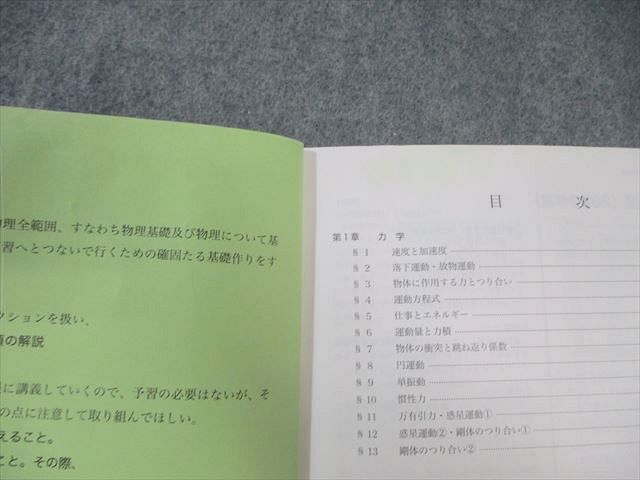 理全範囲、すなわち物理基礎及び物理について基
習へとつないで行くための確固たる基礎作りをす
ションを扱い、
の解説
に講義していくので、予習の必要はないが、そ
の点に注意して取り組んでほしい。
えること。
こと。その際、
目 次
第1章 力 学
§1 速度と加速度
§2 落下運動・放物運動
§3 物体に作用する力とつり合い
§4 運動方程式
§5 仕事とエネルギー
§6 運動量と力積
§7 物体の衝突と跳ね返り係数
§8 円運動
§9 単振動
§10 慣性力
§11 万有引力・惑星運動①
§12 惑星運動②・剛体のつり合い①
§13 剛体のつり合い②